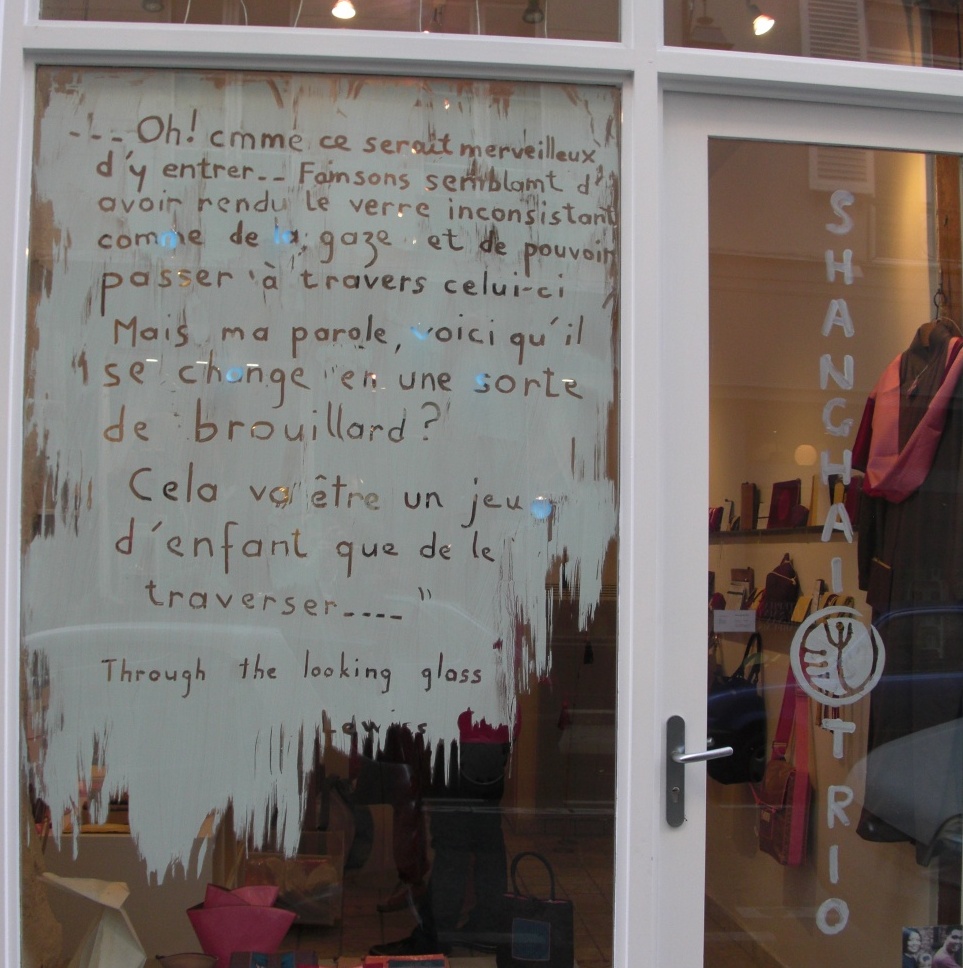 ---Oh! cmme ce serait merveilleux
d'y entrer-- Fainsons semblamt d'
avoir rendu le verre inconsistant
comme de la gaze et de pouvoir
passer à travers celui-ci
Mais ma parole, voici qu'il
se change en une sorte
de brouillard?
Cela va être un jeu
d'enfant que de le
traverser----"
Through the looking glass
Lewis
SHANGHAI TRIO